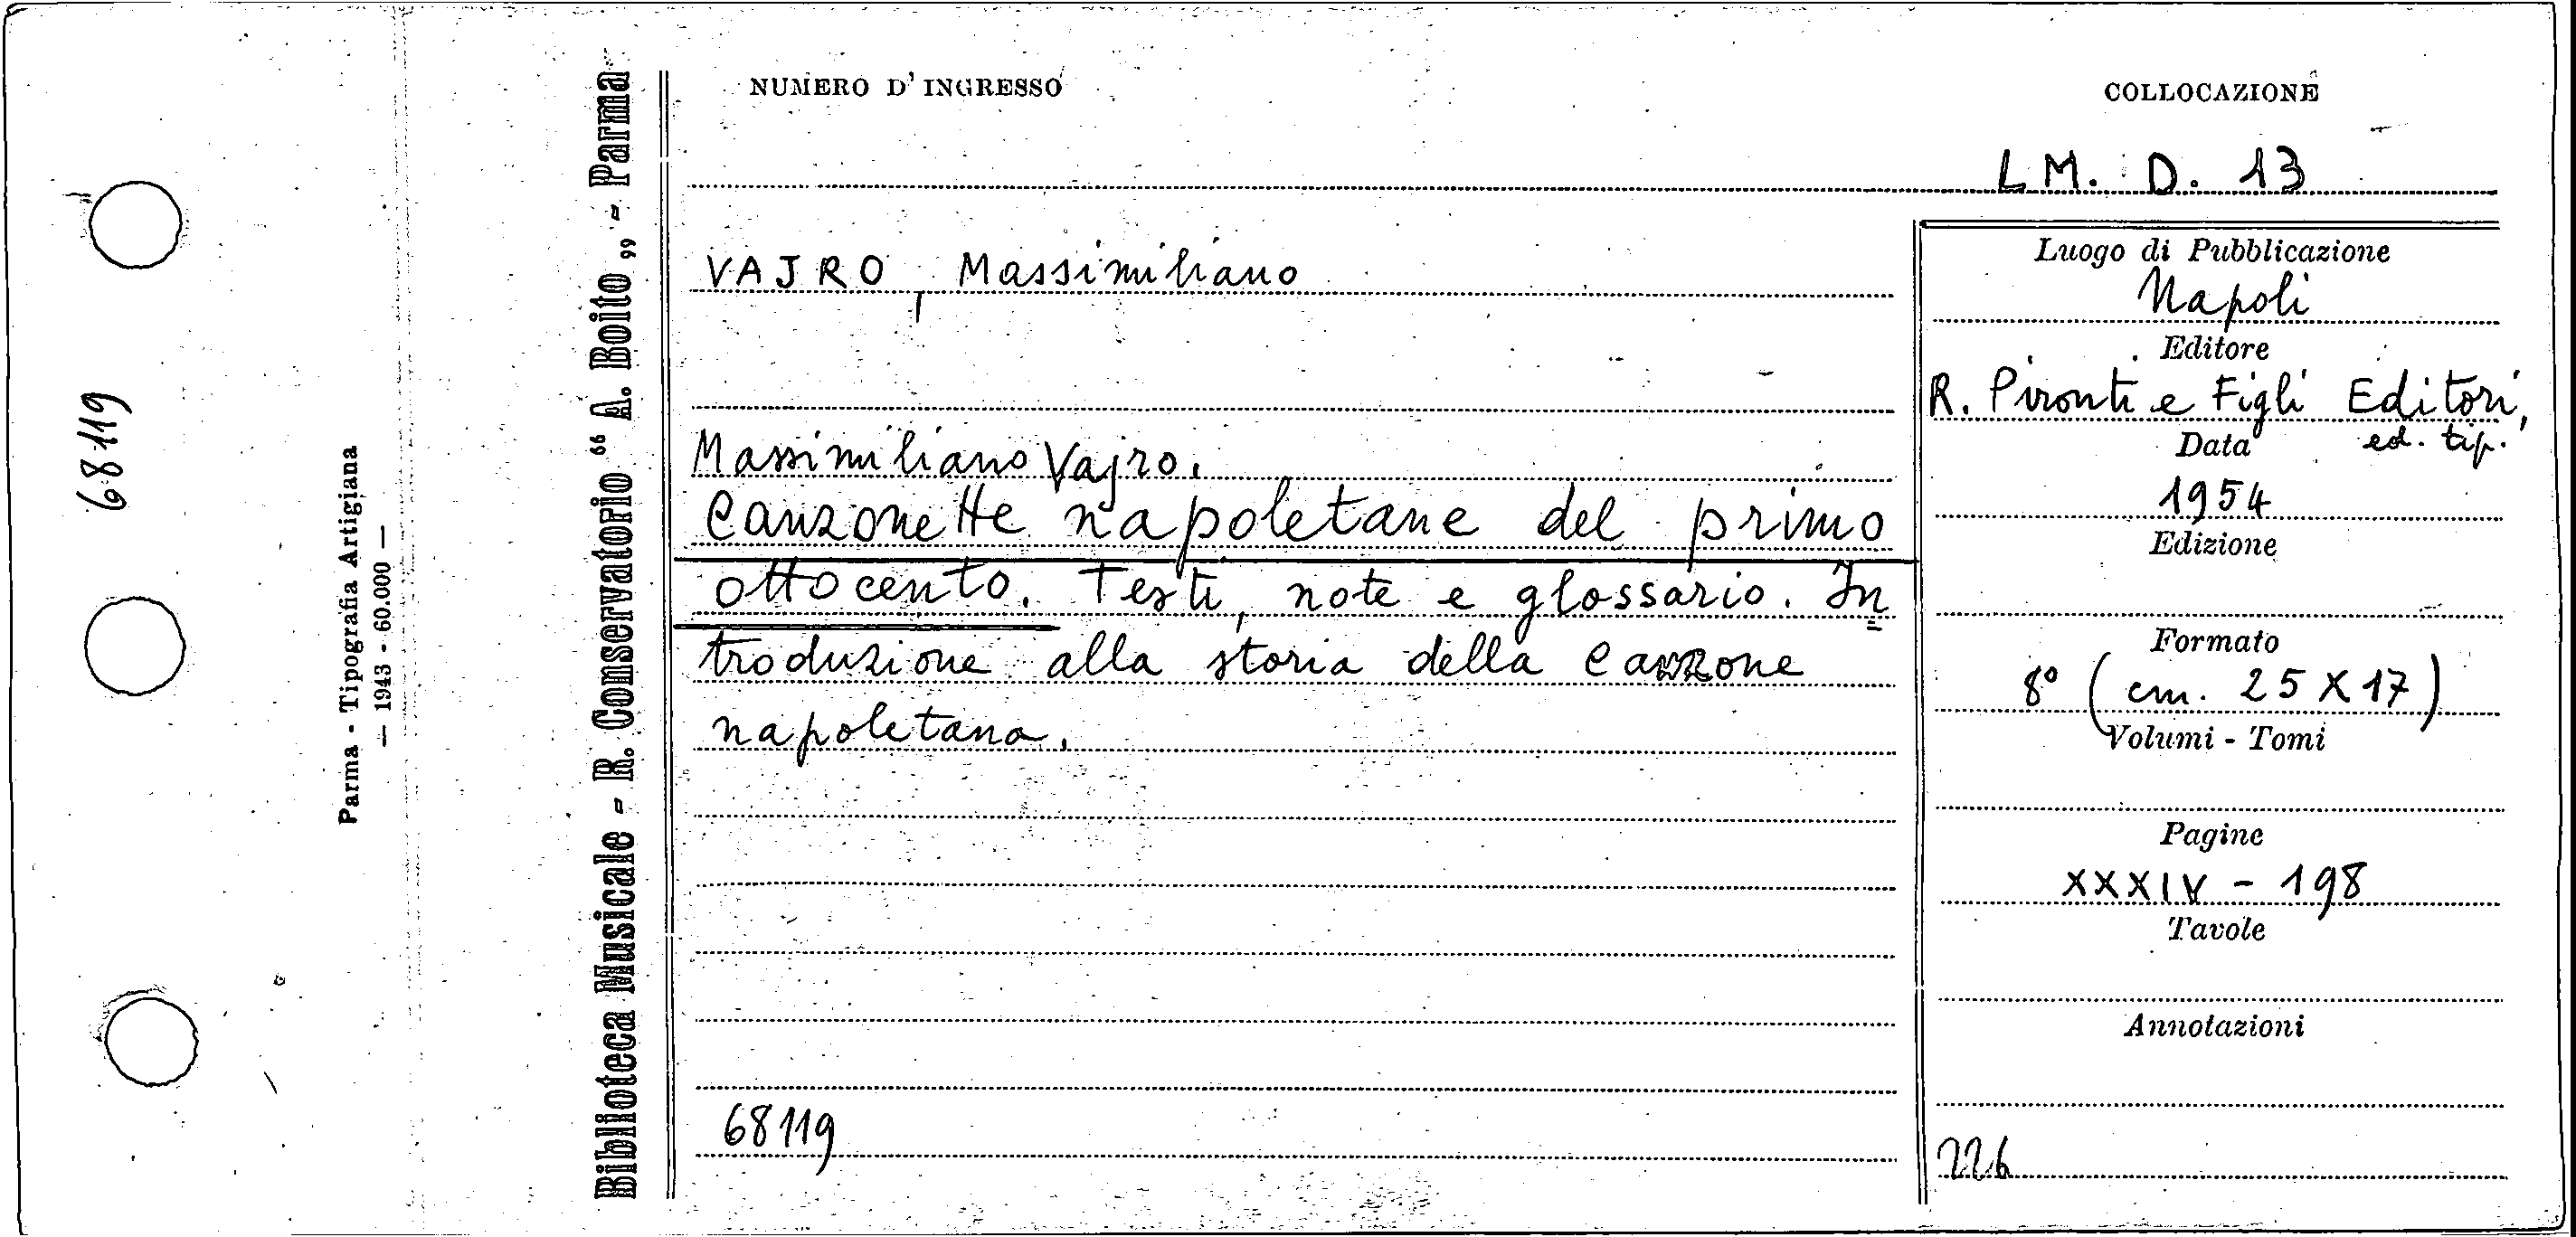 68119
Parma - Tipografia Artigiana
— 1943 - 60.000 —
Biblioteca Musicale - R. Conservatorio “ A. Boito „ - Parma
NUMERO D' INGRESSO
COLLOCAZIONE
LM. D. 13
VAJRO, Massimiliano
Massimiliano Vajro.
Canzonette napoletane del primo
ottocento. Testi, note e glossario. In=
troduzione alla storia della canzone
napoletana.
68119
Luogo di Pubblicazione
Napoli
Editore
R. Pironti e Figli Editori,
ed. tip.
Data
1954
Edizione
Formato
8° (cm. 25 X 17)
Volumi - Tomi
Pagine
XXXIV - 198
Tavole
Annotazioni
226